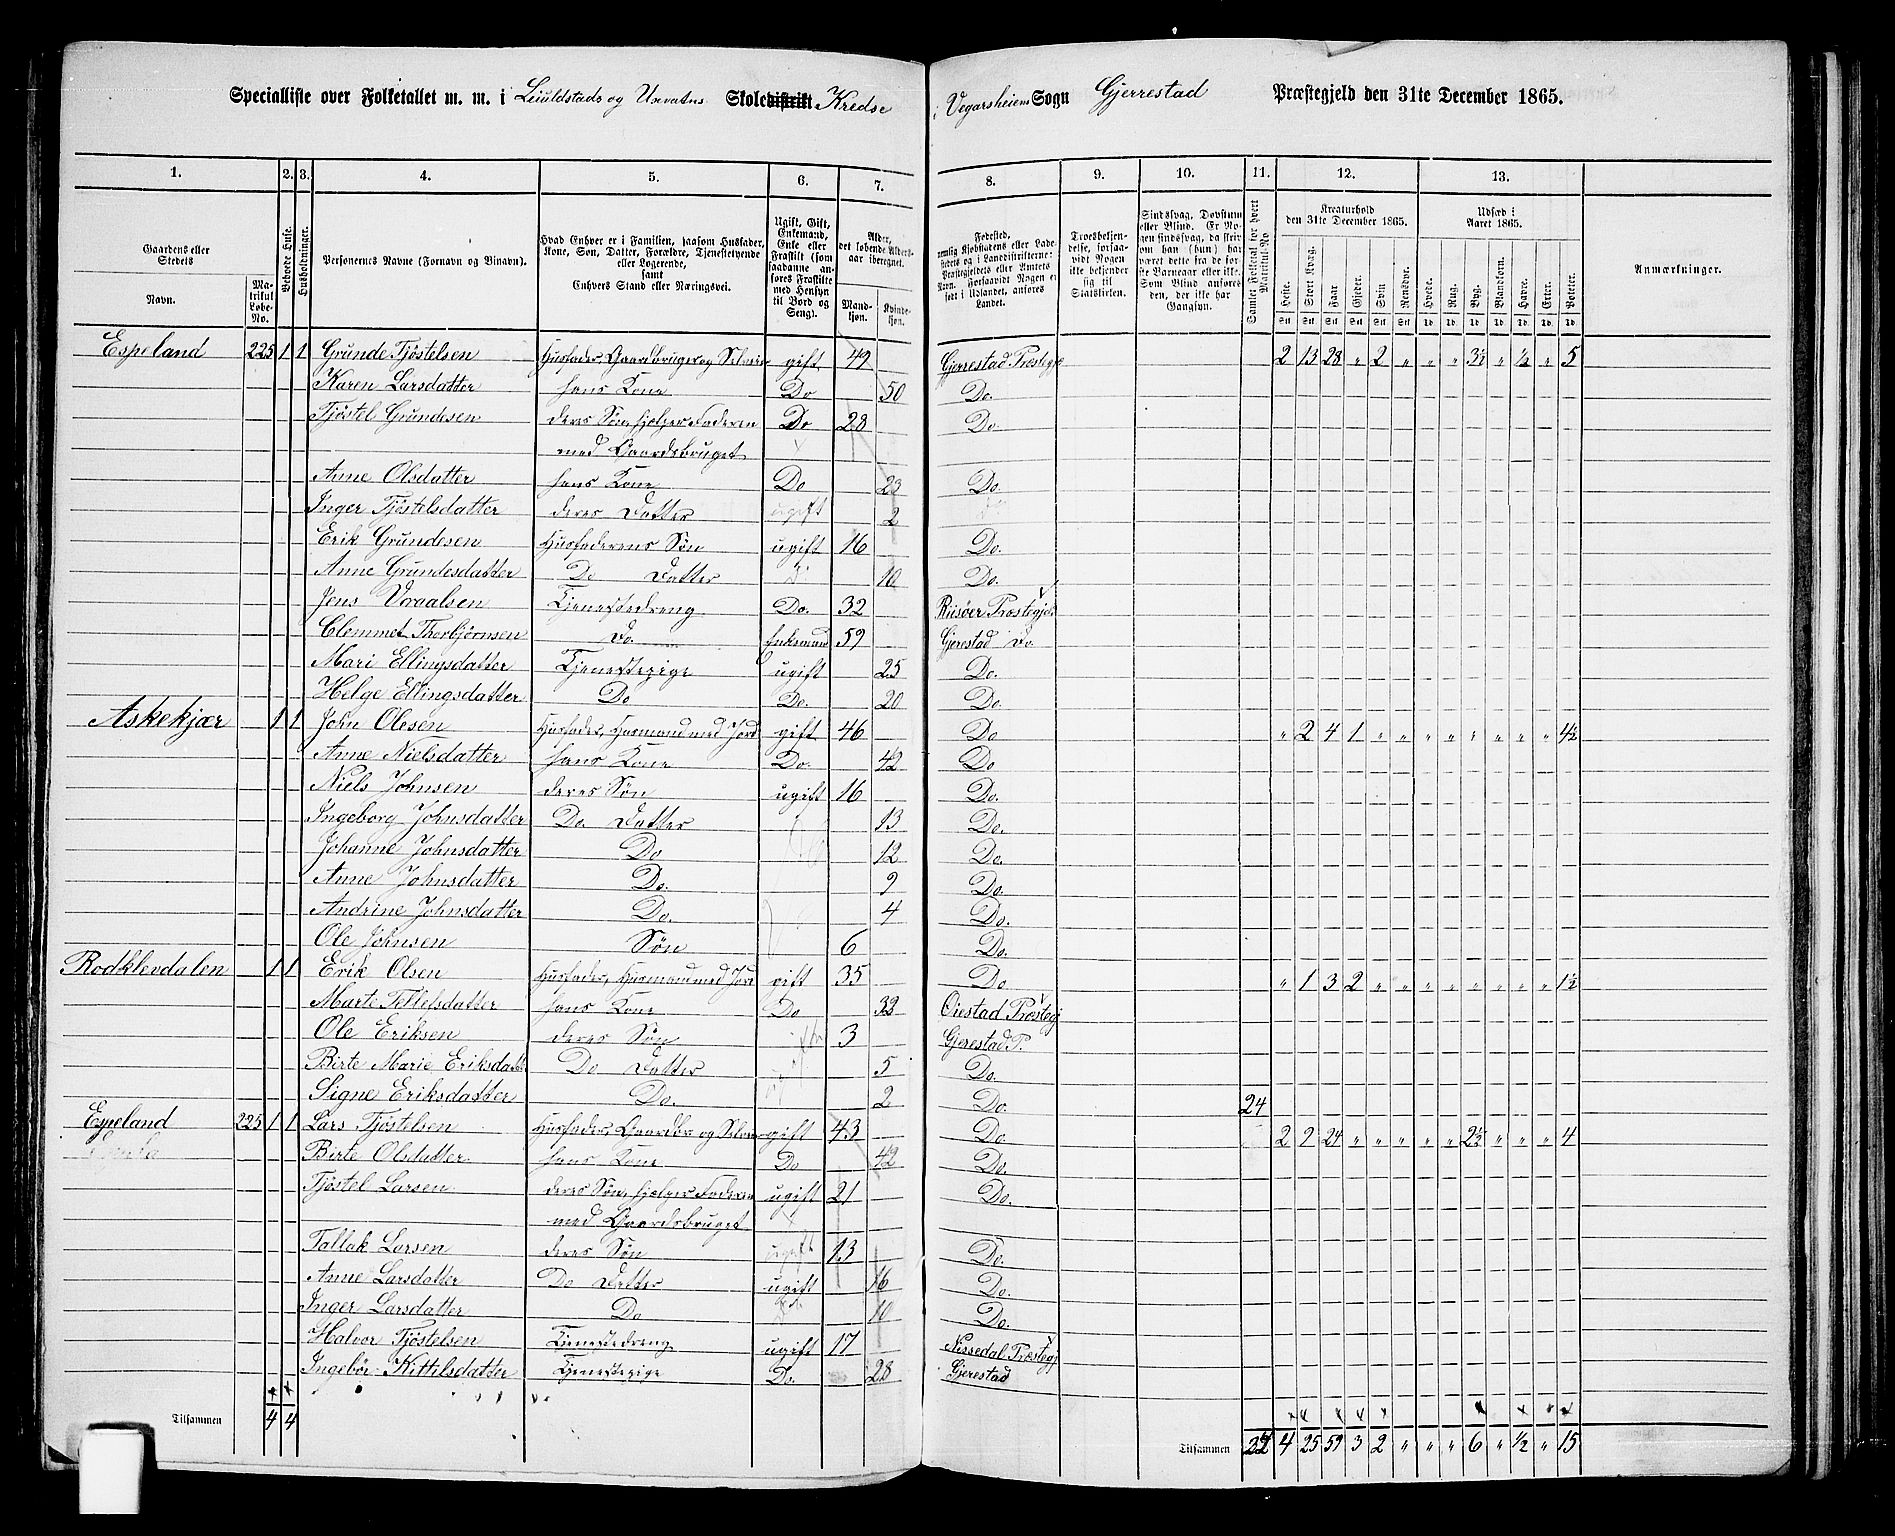 Specialliste over Folketallet m. m. i Liuldstads og Ünvatns Skoledistrikt Kredse
i Vegarsheiens Sogn Gjerrestad Præstegjeld den 31te December 1865.
1. 2. 3. 4. 5. 6. 7. 8. 9. 10. 11. 12. 13.
Gaardens eller Stedets
Navn.
Matrikul Løbe-No.
Beboede Huse.
Husholdninger.
Personernes Navne (Fornavn og Vinavn).
Hvad Enhver er i Familien, saasom Husfader, Kone, Søn, Datter, Forældre, Tjenestetyende eller Logerende, samt Enhvers Stand eller Næringsvei.
Ugift, Gift, Enkemand, Enke eller Fraskilt (som saadanne anføres Fraskilte med Hensyn til Bord og Seng).
Alder, det løbende Aldersaar iberegnet.
Mandkjøn. Kvindekjøn.
Fødested,
Troesbekjendelse, forsaavidt Nogen ikke bekjender sig til Statskirken.
Sindssvag, Døvstum eller Blind.
Samlet Folketal for hvert Matrikul-No.
Kreaturhold den 31te December 1865.
Heste. Stort Kvæg. Faar. Gjeder. Svin. Rensdyr.
Udsæd i Aaret 1865.
Hvede. Rug. Byg. Blandkorn. Havre. Erter. Poteter.
Anmærkninger.
Espeland 225 1 1 Grunde Tjöstelsen Husfader, Gaardbruger og Selveier gift 49 Gjerrestad Præstegj 2 13 28 " 2 " " " 3½ " ½ " 5
Karen Larsdatter hans Kone Do 50 Do.
Tjöstel Grundesen deres Søn, hjelper Faderen Do 28 Do.
med Gaardsbruget
Anne Olsdatter hans Kone Do 23 Do.
Inger Tjöstelsdatter deres Datter ugift 2
Erik Grundesen Husfaderens Søn ugift 16 Do.
Anne Grundesdatter Do Datter 10 Do.
Jens Vraalsen Tjenestedreng Do. 32 Riisöer Præstegj.
Clemmet Thorbjörnsen Do. Enkemand 59 Gjerestad Do.
Mari Ellingsdatter Tjenestepige ugift 25 Do.
Helge Ellingsdatter Do Do. 20 Do.
Askekjær 1 1 John Olesen Husfader, Husmand med Jord gift 46 Do " 2 4 1 " " " " " " " " 4½
Anne Nielsdatter hans Kone Do. 42 Do
Niels Johnsen deres Søn ugift 16 Do.
Ingeborg Johnsdatter Do. Datter 13 Do.
Johanne Johnsdatter Do 12 Do.
Anne Johnsdatter Do. 9 Do.
Andrine Johnsdatter Do. 4 Do.
Ole Johnsen Søn 6 Do.
Rodklevdalen 1 1 Erik Olsen Husfader, Husmand med Jord gift 35 Do " 1 3 2 " " " " " " " " 1½
Marte Tellefsdatter hans Kone Do 33 Oiestad Præstegj
Ole Eriksen deres Søn 3 Gjerestad P.
Birte Marie Eriksdatt Do Datter 5 Do.
Signe Eriksdatter Do. 2 Do. 24
Espeland 225 1 1 Lars Tjöstelsen Husfader, Gaardbr og Selveier gift 43 Do. 2 9 24 " " " " " 2½ " " " 4
Birte Olsdatter hans Kone Do 42 Do.
Tjöstel Larsen deres Søn, hjelper Faderen ugift 21 Do.
med Gaardsbruget
Tallak Larsen deres Søn ugift 13 Do.
Anne Larsdatter Do Datter ugift 16 Do.
Inger Larsdatter Do Do. 10 Do.
Halvor Tjöstelsen Tjenestedreng ugift 17 Nissedal Præstegj
Ingebør Kittilsdatter Tjenestepige Do. 28 Gjerestad
Tilsammen 4 4 Tilsammen 32 4 25 59 3 2 " " " 6 " ½ " 15